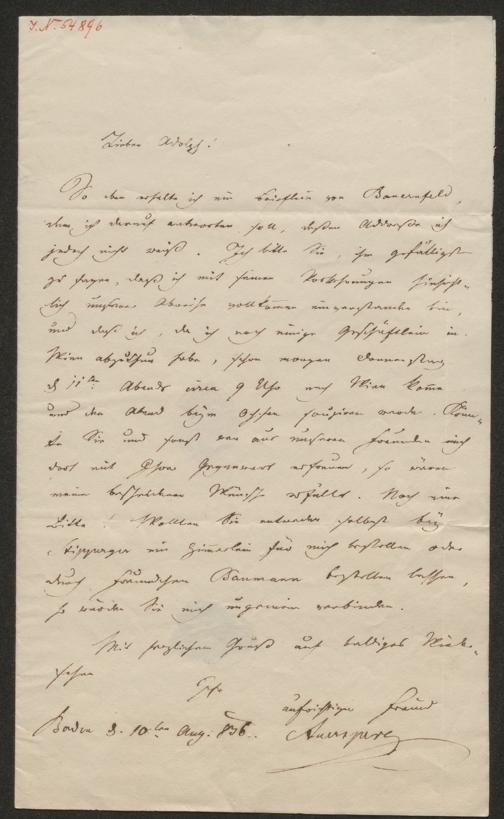 J.N. 54896
Lieber Adolph!
So eben erhalte ich ein Brieflein von Bauernfeld,
dem ich darauf antworten soll, dessen Addresse ich
jedoch nicht weiß. Ich bitte Sie, ihm gefälligst
zu sagen, daß ich mit seinen Vorkehrungen hinsicht-
lich unserer Abreise vollkommen einverstanden bin,
und daß ich, da ich noch einige Geschäftlein in
Wien abzuthun habe, schon morgen Donnerstag
d 11ten Abends circa 9 Uhr nach Wien komme
und den Abend beym Ochsen soupiren werde. Könn-
te Sie und sonst wen aus unseren Freunden mich
dort mit Ihrer Gegenwart erfreuen, so wären
meine bescheidenen Wünsche erfüllt. Noch eine
Bitte! Wollten Sie entweder selbst bey
ein Zimmerlein für mich bestellen oder
durch Freundchen Baumann bestellen lassen,
so würden Sie mich ungemein verbinden.
Mit herzlichem Gruß auf baldiges Wieder-
sehen
Ihr
aufrichtiger Freund
Baden d. 10ten Aug. 836. Auersperg